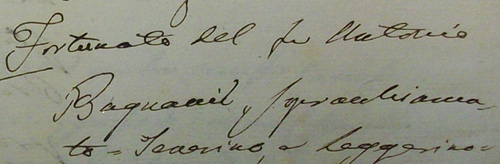 Fortunato del fu Antonio
Bagnavil, sprachiama-
to = Severino, e Leggerino =